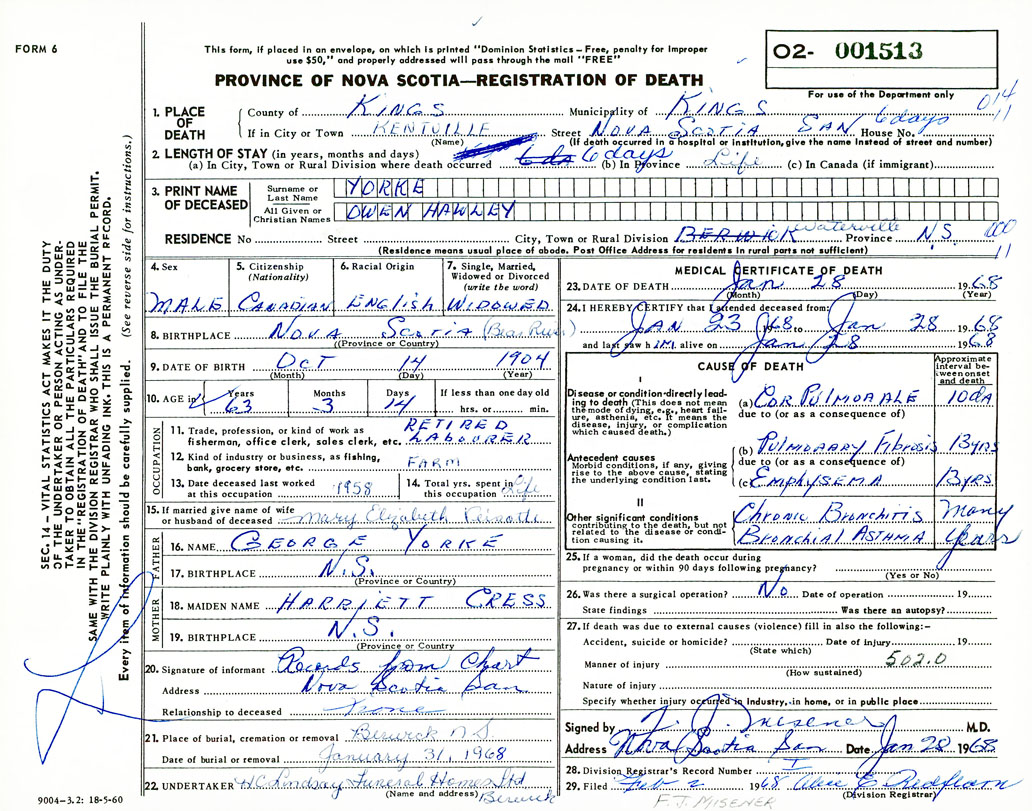 FORM 6
This form, if placed in an envelope, on which is printed "Dominion Statistics – Free, penalty for improper
use $50," and properly addressed will pass through the mail "FREE"
02- 001513
For use of the Department only
PROVINCE OF NOVA SCOTIA—REGISTRATION OF DEATH
014
11
1. PLACE OF DEATH County of KINGS Municipality of KINGS
If in City or Town KENTVILLE Street NOVA SCOTIA SAN House No. 6 days
(Name) (If death occurred in a hospital or institution, give the name instead of street and number)
2. LENGTH OF STAY (in years, months and days)
(a) In City, Town or Rural Division where death occurred 6 days (b) In Province Life (c) In Canada (if immigrant)
3. PRINT NAME OF DECEASED Surname or Last Name YORKE
All Given or Christian Names OWEN HAWLEY
RESIDENCE No Street City, Town or Rural Division BERWICK Waterville Province N.S. 000
11
(Residence means usual place of abode. Post Office Address for residents in rural parts not sufficient)
4. Sex MALE
5. Citizenship (Nationality) CANADIAN
6. Racial Origin ENGLISH
7. Single, Married, Widowed or Divorced (write the word) WIDOWED
8. BIRTHPLACE NOVA SCOTIA (Bear River)
(Province or Country)
9. DATE OF BIRTH OCT 14 1904
(Month) (Day) (Year)
10. AGE in Years 63 Months 3 Days 14 If less than one day old hrs. or min.
OCCUPATION
11. Trade, profession, or kind of work as fisherman, office clerk, sales clerk, etc. RETIRED LABOURER
12. Kind of industry or business, as fishing, bank, grocery store, etc. FARM
13. Date deceased last worked at this occupation 1958
14. Total yrs. spent in this occupation Life
15. If married give name of wife or husband of deceased Mary Elizabeth
FATHER
16. NAME GEORGE YORKE
17. BIRTHPLACE N.S.
(Province or Country)
MOTHER
18. MAIDEN NAME HARRIETT CRESS
19. BIRTHPLACE N.S.
(Province or Country)
20. Signature of informant Records from Chart
Address Nova Scotia San
Relationship to deceased None
21. Place of burial, cremation or removal Berwick N.S.
Date of burial or removal January 31, 1968
22. UNDERTAKER H.C. Lindsay Funeral Home Ltd
(Name and address) Berwick
9004–3.2: 18-5-60
MEDICAL CERTIFICATE OF DEATH
23. DATE OF DEATH Jan 28 1968
(Month) (Day) (Year)
24. I HEREBY CERTIFY that I attended deceased from:
JAN 23 1968 to Jan 28 1968
and last saw him alive on Jan 28 1968
CAUSE OF DEATH
Approximate interval between onset and death
I
Disease or condition directly leading to death (This does not mean the mode of dying, e.g., heart failure, asthenia, etc. It means the disease, injury, or complication which caused death.)
(a) COR PULMOALE 10dA
due to (or as a consequence of)
Antecedent causes
Morbid conditions, if any, giving rise to the above cause, stating the underlying condition last.
(b) PULMOARY FIBROSIS 13yRS
due to (or as a consequence of)
(c) EMPHYSEMA 13yRS
II
Other significant conditions
contributing to the death, but not related to the disease or condition causing it.
CHRONIC BRONCHITIS Many
BRONCHIAL ASTHMA years
25. If a woman, did the death occur during
pregnancy or within 90 days following pregnancy?
(Yes or No)
26. Was there a surgical operation? No Date of operation 19
State findings Was there an autopsy?
27. If death was due to external causes (violence) fill in also the following:–
Accident, suicide or homicide? Date of injury 19
(State which)
Manner of injury 502.0
(How sustained)
Nature of injury
Specify whether injury occurred in Industry, in home, or in public place
Signed by F. J. Misener M.D.
Address Nova Scotia San Date Jan 28 1968
28. Division Registrar's Record Number I
29. Filed Feb 2 1968
(Division Registrar)
F. J. MISENER
SEC. 14 – VITAL STATISTICS ACT MAKES IT THE DUTY
OF THE UNDERTAKER OR PERSON ACTING AS UNDER-
TAKER TO OBTAIN ALL THE PARTICULARS REQUIRED
IN THE "REGISTRATION OF DEATH" AND TO FILE THE
SAME WITH THE DIVISION REGISTRAR WHO SHALL ISSUE THE BURIAL PERMIT.
WRITE PLAINLY WITH UNFADING INK. THIS IS A PERMANENT RECORD.
Every item of information should be carefully supplied. (See reverse side for instructions.)